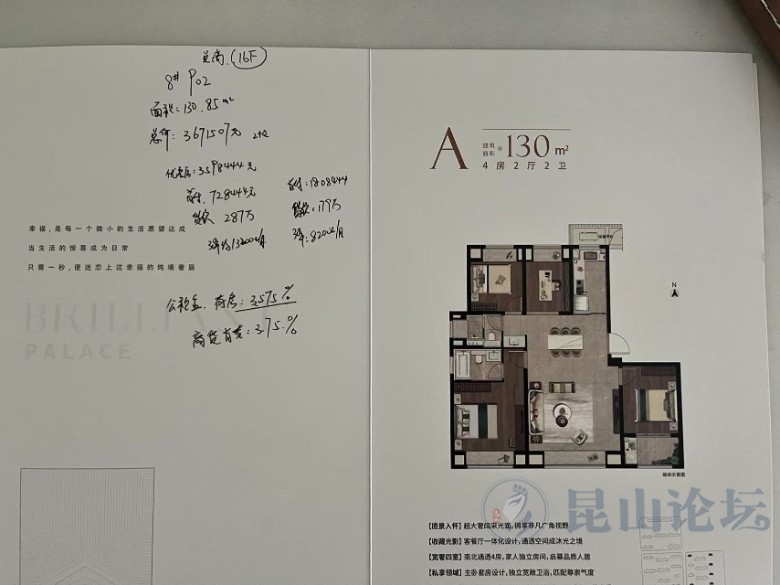 16F
8# P02
面积:130.85m²
总价:3671507元
优惠后:3598444元
首付:728444元
贷款 287万
首付:1808444
贷款:179万
月供:8200/月
幸福,是每一个微小的生活愿望达成
当生活的惊喜成为日常
只需一秒,便迷恋上这幸福的纯墙奢居
公积金 首房:3.575%
商贷首套:3.75%
BRILLIANT
PALACE
A 建筑面积 约130m²
4房2厅2卫
N
【揽景入怀】超大奢阔采光面,纵享非凡广角视野
【收藏光影】客餐厅一体化设计,通透空间成沐光之境
【宽奢四室】南北通透4房,家人独立房间,启幕品质人居
【私享领域】主卧套房设计,独立宽敞卫浴,匹配尊崇气度
昆山论坛